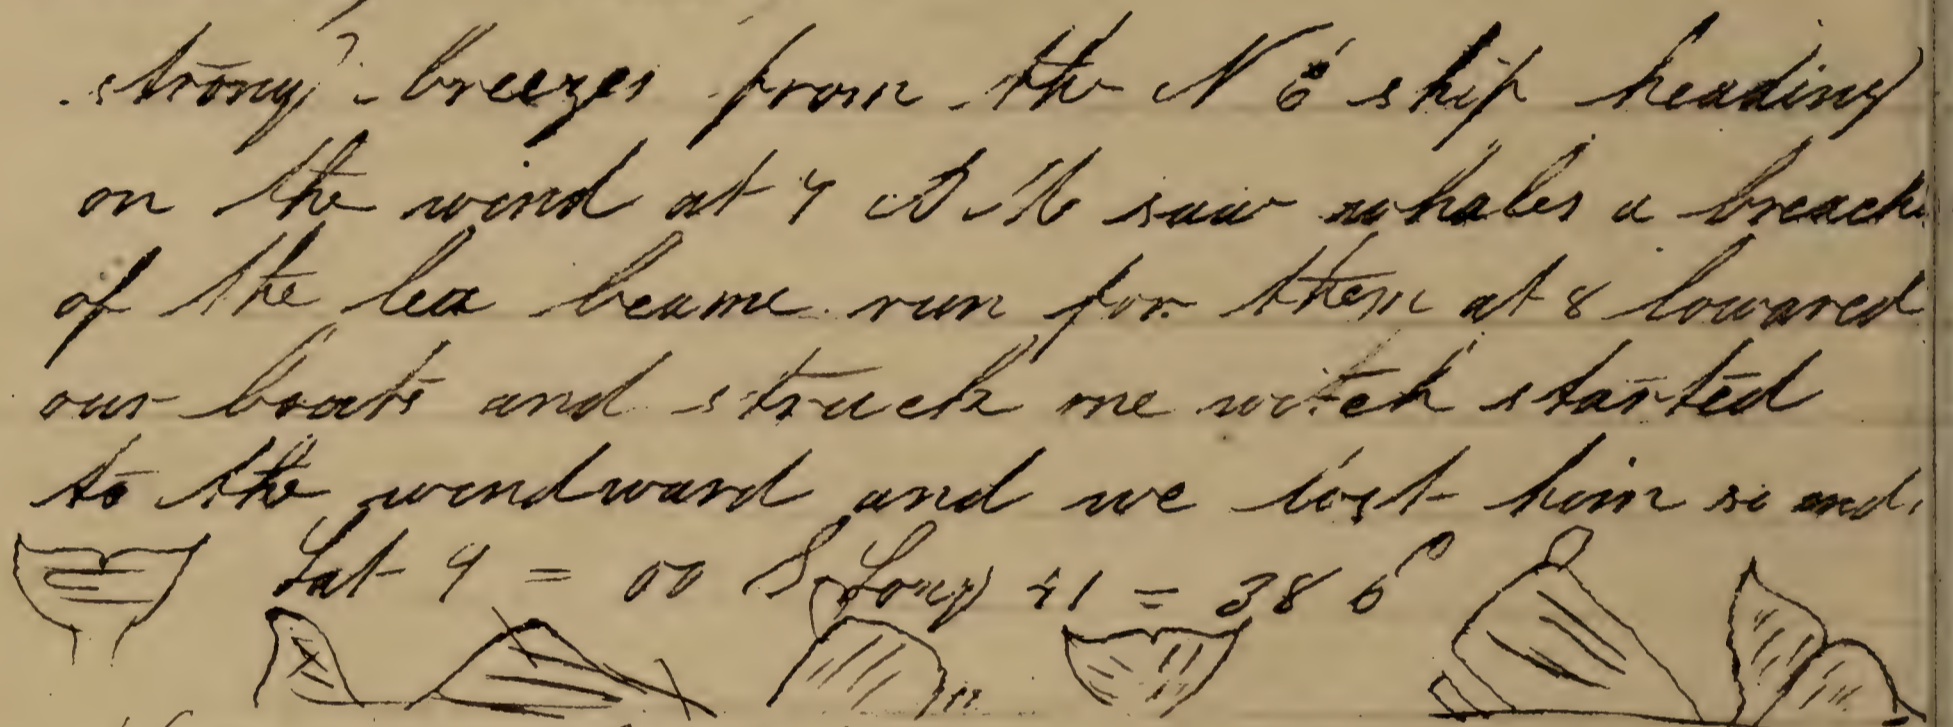 strong breezes from the N E ship heading
on the wind at 4 P M saw whales a breach
of the lea beame run for them at 8 lowared
our boats and struck one witch started
to the windward and we lost him so ends
Lat 4 = 00 S Long 41 = 38 E